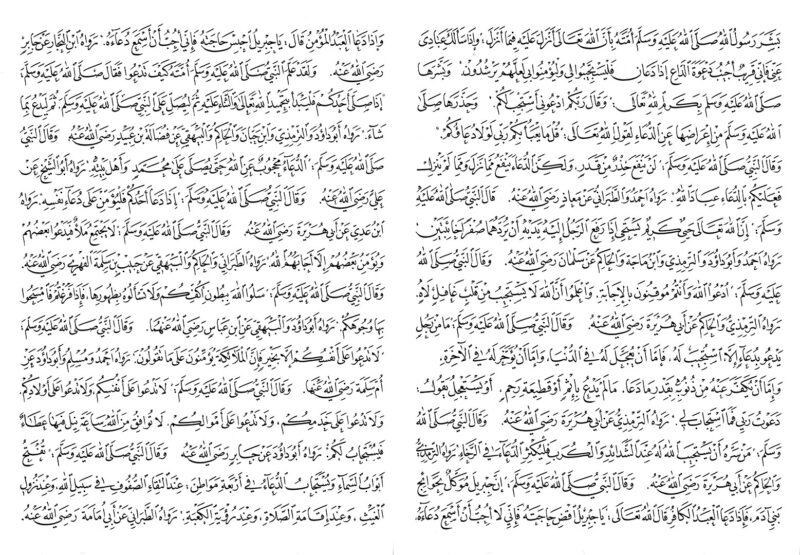 بشر رسول الله صلى الله عليه وسلم أمته بأن الله تعالى أنزل عليه فيما أنزل: وإذا سألك عبادي
عني فإني قريب أجيب دعوة الداع إذا دعان فليستجيبوا لي وليؤمنوا بي لعلهم يرشدون. وبشرها
صلى الله عليه وسلم بكرم الله تعالى: وقال ربكم ادعوني أستجب لكم. وحذرها صلى
الله عليه وسلم من إعراضها عن الدعاء لقول الله تعالى: قل ما يعبأ بكم ربي لولا دعاؤكم.
وقال النبي صلى الله عليه وسلم: لن ينفع حذر من قدر، ولكن الدعاء ينفع مما نزل ومما لم ينزل،
فعليكم بالدعاء عباد الله. رواه أحمد والطبراني عن معاذ رضي الله عنه. قال النبي صلى الله عليه
وسلم: إن الله تعالى حيي كريم يستحي إذا رفع الرجل إليه يديه أن يردهما صفرا خائبتين.
رواه أحمد وأبو داود والترمذي وابن ماجه والحاكم عن سلمان رضي الله عنه. وقال النبي صلى الله
عليه وسلم: ادعوا الله وأنتم موقنون بالإجابة، واعلموا أن الله لا يستجيب من قلب غافل لاه.
رواه الترمذي والحاكم عن أبي هريرة رضي الله عنه. وقال النبي صلى الله عليه وسلم: ما من رجل
يدعو بدعاء إلا استجيب له، فإما أن يعجل له في الدنيا، وإما أن يؤخر له في الآخرة،
وإما أن يكفر عنه من ذنوبه بقدر ما دعا، مالم يدع بإثم أو قطيعة رحم، أو يستعجل يقول:
دعوت ربي فما استجاب لي. رواه الترمذي عن أبي هريرة رضي الله عنه. وقال النبي صلى الله عليه
وسلم: من سره أن يستجيب الله له عند الشدائد والكرب فليكثر الدعاء في الرخاء. رواه الترمذي
والحاكم عن أبي هريرة رضي الله عنه. وقال النبي صلى الله عليه وسلم: إن جبريل موكل بحوائج
بني آدم، فإذا دعا العبد الكافر قال الله تعالى: يا جبريل اقض حاجته فإني لا أحب أن أسمع دعاءه،
وإذا دعا العبد المؤمن قال: يا جبريل احبس حاجته فإني أحب أن أسمع دعاءه. رواه ابن النجار عن جابر
رضي الله عنه. ولقد علم النبي صلى الله عليه وسلم أمته كيف تدعوا فقال صلى الله عليه وسلم:
إذا صلى أحدكم فليبدأ بتحميد الله تعالى والثناء عليه ثم ليصل على النبي صلى الله عليه وسلم، ثم ليدع بما
شاء. رواه أبو داود والترمذي وابن حبان والحاكم والبيهقي عن فضالة بن عبيد رضي الله عنه. وقال النبي
صلى الله عليه وسلم: الدعاء محجوب عن الله حتى يصلى على محمد وأهل بيته. رواه أبو الشيخ عن
علي رضي الله عنه. وقال النبي صلى الله عليه وسلم: إذا دعا أحدكم فليؤمن على دعاء نفسه. رواه
ابن عدي عن أبي هريرة رضي الله عنه. وقال النبي صلى الله عليه وسلم: لا يجتمع ملأ فيدعو بعضهم
ويؤمن بعضهم إلا أجابهم الله. رواه الطبراني والحاكم والبيهقي عن حبيب بن سلمة الفهري رضي الله عنه.
وقال النبي صلى الله عليه وسلم: سلوا الله ببطون أكفكم ولا تسألوه بظهورها، فإذا فرغتم فامسحوا
بها وجوهكم. رواه أبو داود والبيهقي عن ابن عباس رضي الله عنهما. وقال النبي صلى الله عليه وسلم:
لا تدعوا على أنفسكم إلا بخير فإن الملائكة يؤمنون على ما تقولون. رواه أحمد ومسلم وأبو داود عن
أم سلمة رضي الله عنها. وقال النبي صلى الله عليه وسلم: لا تدعوا على أنفسكم، ولا تدعوا على أولادكم،
ولا تدعوا على خدمكم، ولا تدعوا على أموالكم، لا توافق من الله ساعة نيل فيها عطاء
فيستجاب لكم. رواه أبو داود عن جابر رضي الله عنه. وقال النبي صلى الله عليه وسلم: تفتح
أبواب السماء ويستجاب الدعاء في أربعة مواطن: عند التقاء الصفوف في سبيل الله، وعند نزول
الغيث، وعند إقامة الصلاة، وعند رؤية الكعبة. رواه الطبراني عن أبي أمامة رضي الله عنه.